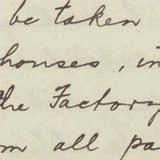 be taken
houses, in
the Factory
m all pa